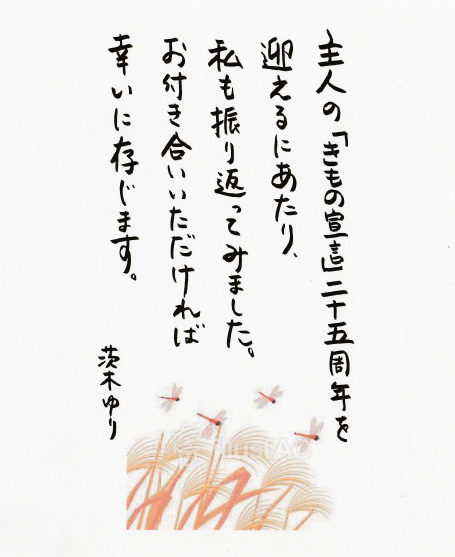 主人の「きもの宣言」二十五周年を
迎えるにあたり、
私も振り返ってみました。
お付き合いいただければ
幸いに存じます。
茨木ゆり
illustAC